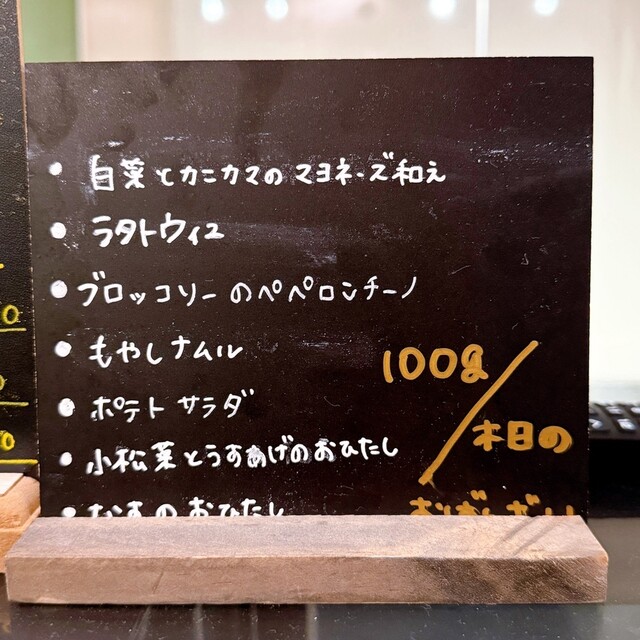 ・白菜とカニカマのマヨネーズ和え
・ラタトウィユ
・ブロッコリーのペペロンチーノ
・もやしナムル
・ポテトサラダ
・小松菜とうすあげのおひたし
・なすのおひたし
100g/本日の
おばんざい